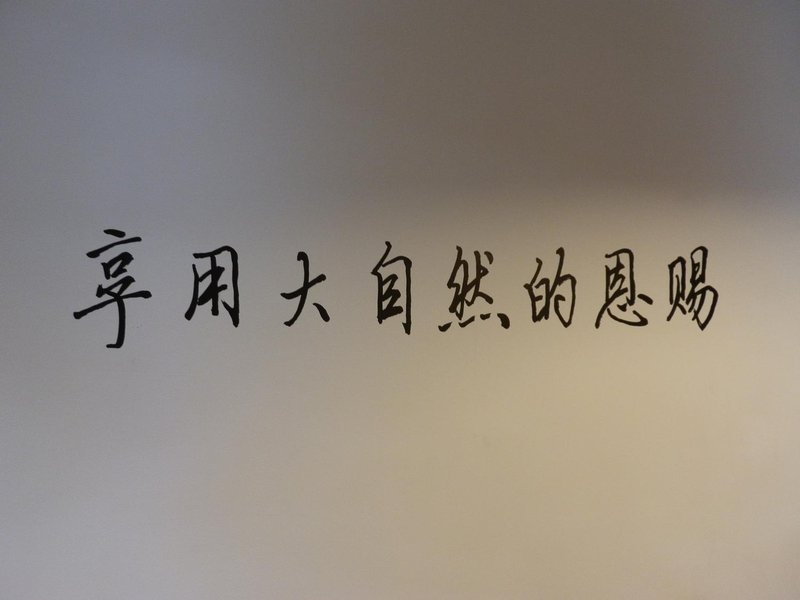 享用大自然的恩赐